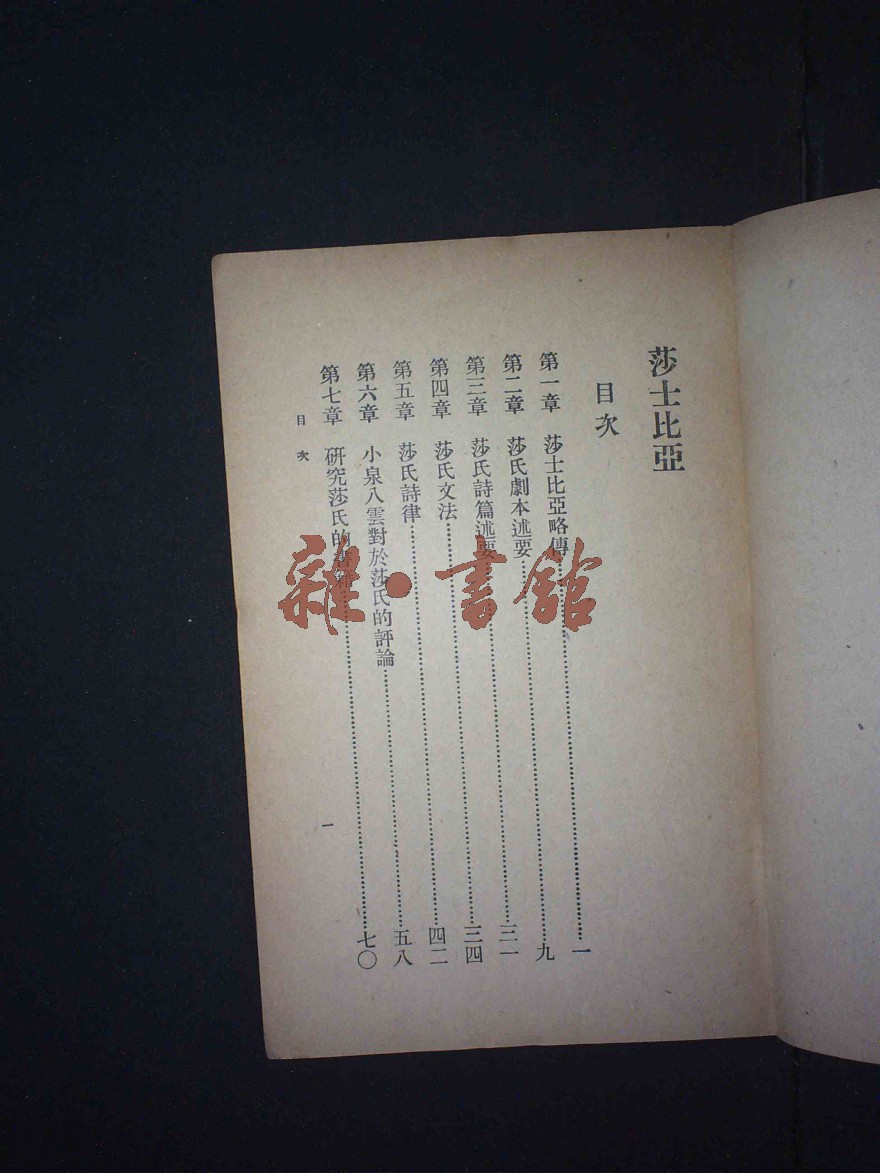 莎士比亞
目次
第一章 莎士比亞略傳……一
第二章 莎氏劇本述要……九
第三章 莎氏詩篇述要……三一
第四章 莎氏文法……三四
第五章 莎氏詩律……四二
第六章 小泉八雲對於莎氏的評論……五八
第七章 研究莎氏的書籍……七〇
目次
一
雜·書館